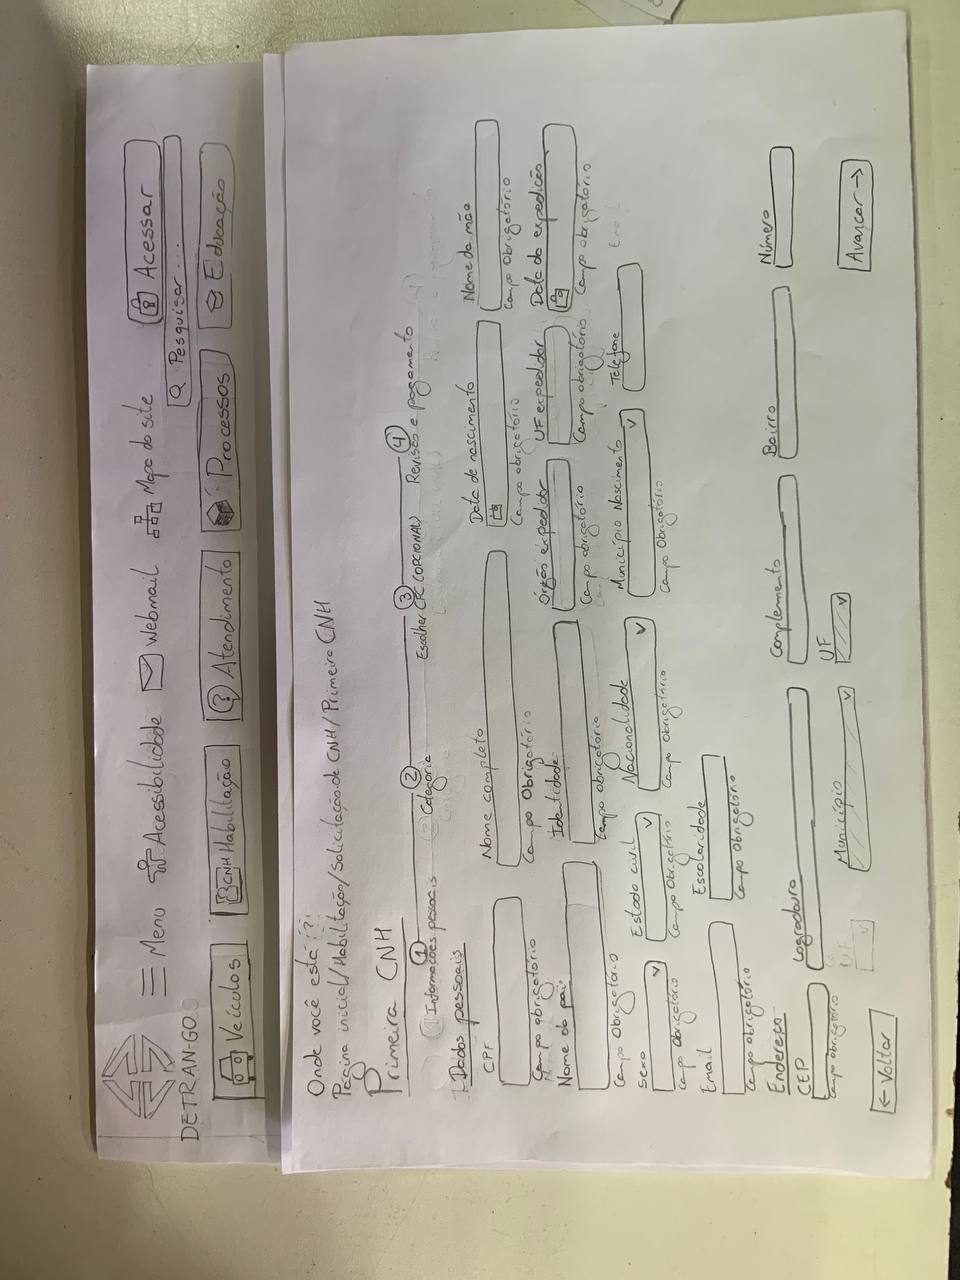 DETRAN-GO
Menu
Acessibilidade
Webmail
Mapa do site
Acessar
Pesquisar ...
Veículos
CNH Habilitação
? Atendimento
Processos
Educação
Onde você está?!
Página inicial/Habilitação/Solicitação de CNH/Primeira CNH
Primeira CNH
1 Informações pessoais
2 Categoria
3 Escolher CFC (OPCIONAL)
4 Revisão e pagamento
Dados pessoais
CPF
Campo obrigatório
Nome completo
Campo Obrigatório
Data de nascimento
Campo obrigatório
Nome da mãe
Campo Obrigatório
Nome do pai
Campo Obrigatório
Identidade
Campo obrigatório
Órgão expedidor
Campo obrigatório
UF expedidor
Campo obrigatório
Data da expedição
Campo obrigatório
Sexo
Campo Obrigatório
Estado civil
Campo Obrigatório
Nacionalidade
Campo Obrigatório
Município Nascimento
Campo Obrigatório
Telefone
Email
Campo Obrigatório
Escolaridade
Campo Obrigatório
Endereço
CEP
Campo obrigatório
Logradouro
Complemento
Bairro
Número
UF
Município
UF
← Voltar
Avançar →